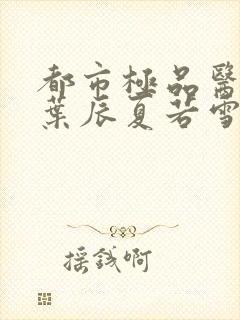 都市極品醫
葉辰夏若雪
搖錢啊